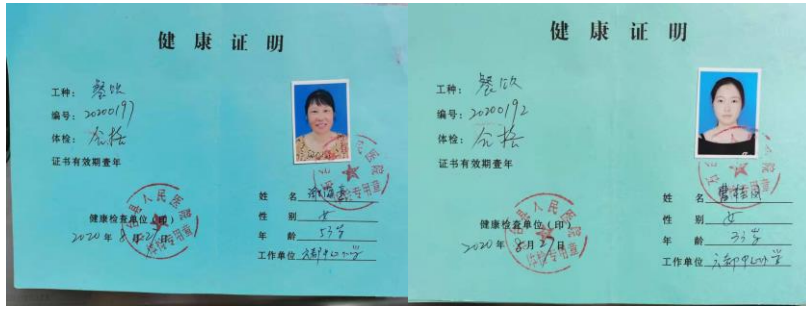 健康证明
工种：餐饮
编号：20200197
体检：合格
证书有效期壹年
健康检查单位（印）
2020年8月27日
姓 名
性 别 女
年 龄 53岁
工作单位 中心小学
健康证明
工种：餐饮
编号：20200192
体检：合格
证书有效期壹年
健康检查单位（印）
2020年8月27日
姓 名
性 别 女
年 龄 33岁
工作单位 中心小学
县人民医院
体检专用章